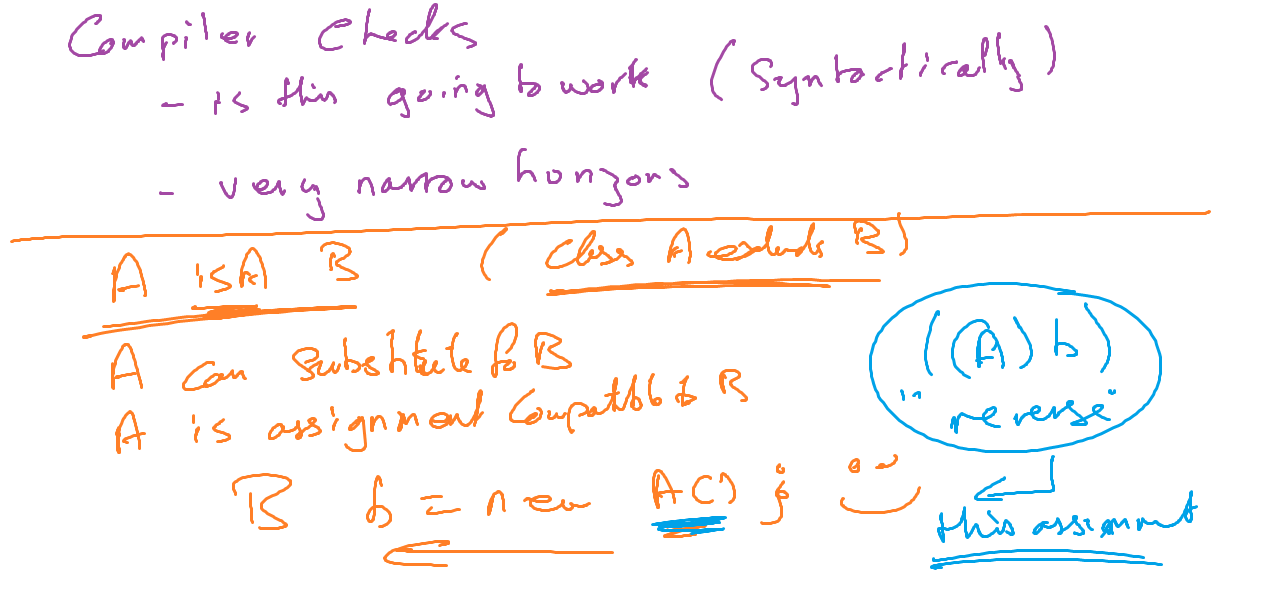 Compiler Checks
- is this going to work (Syntactically)
- very narrow horizons
A isA B (Class A extends B)
A can substitute for B
A is assignment compatible to B
B b = new A();
((A) b)
"reverse"
this assignment